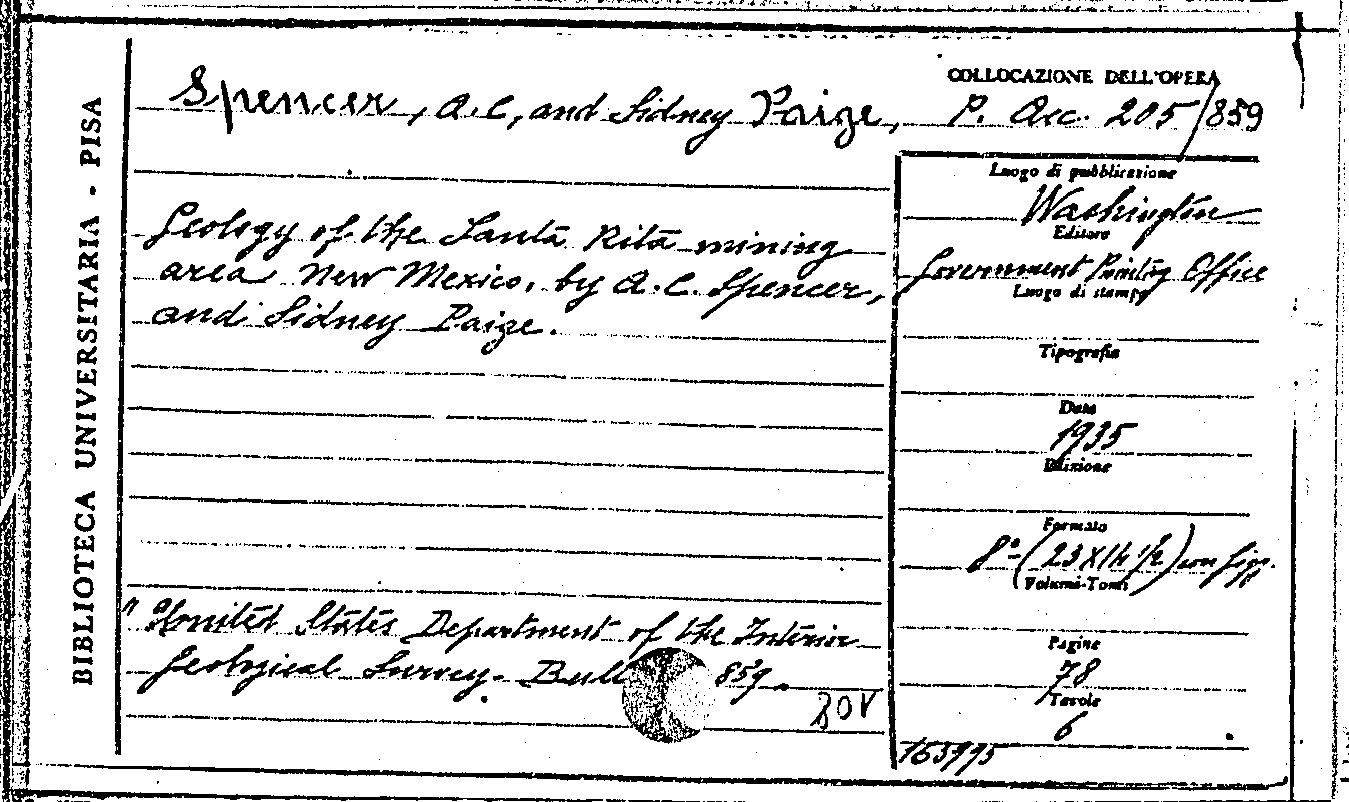 BIBLIOTECA UNIVERSITARIA - PISA
COLLOCAZIONE DELL'OPERA
Spencer, A.C, and Sidney Paige, P. Acc. 205/859
Geology of the Santa Rita mining
area New Mexico, by A.C. Spencer,
and Sidney Paige.
"United States Department of the Interior
Geological Survey. Bull 859.
BOV
Luogo di pubblicazione
Washington
Editore
Government Printing Office
Luogo di stampa
Tipografia
Data
1935
Edizione
Formato
8º (23X14 1/2) con figg.
Volumi-Tomi
Pagine
78
Tavole
6
163995